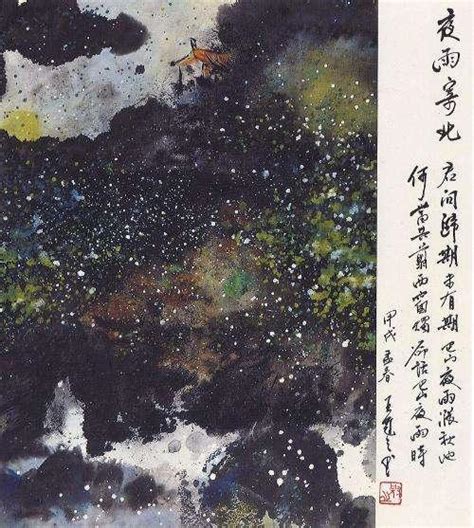 夜雨寄北
君问歸期未有期巴山夜雨漲秋池
何當共剪西窗燭却話巴山夜雨時
甲戌孟春